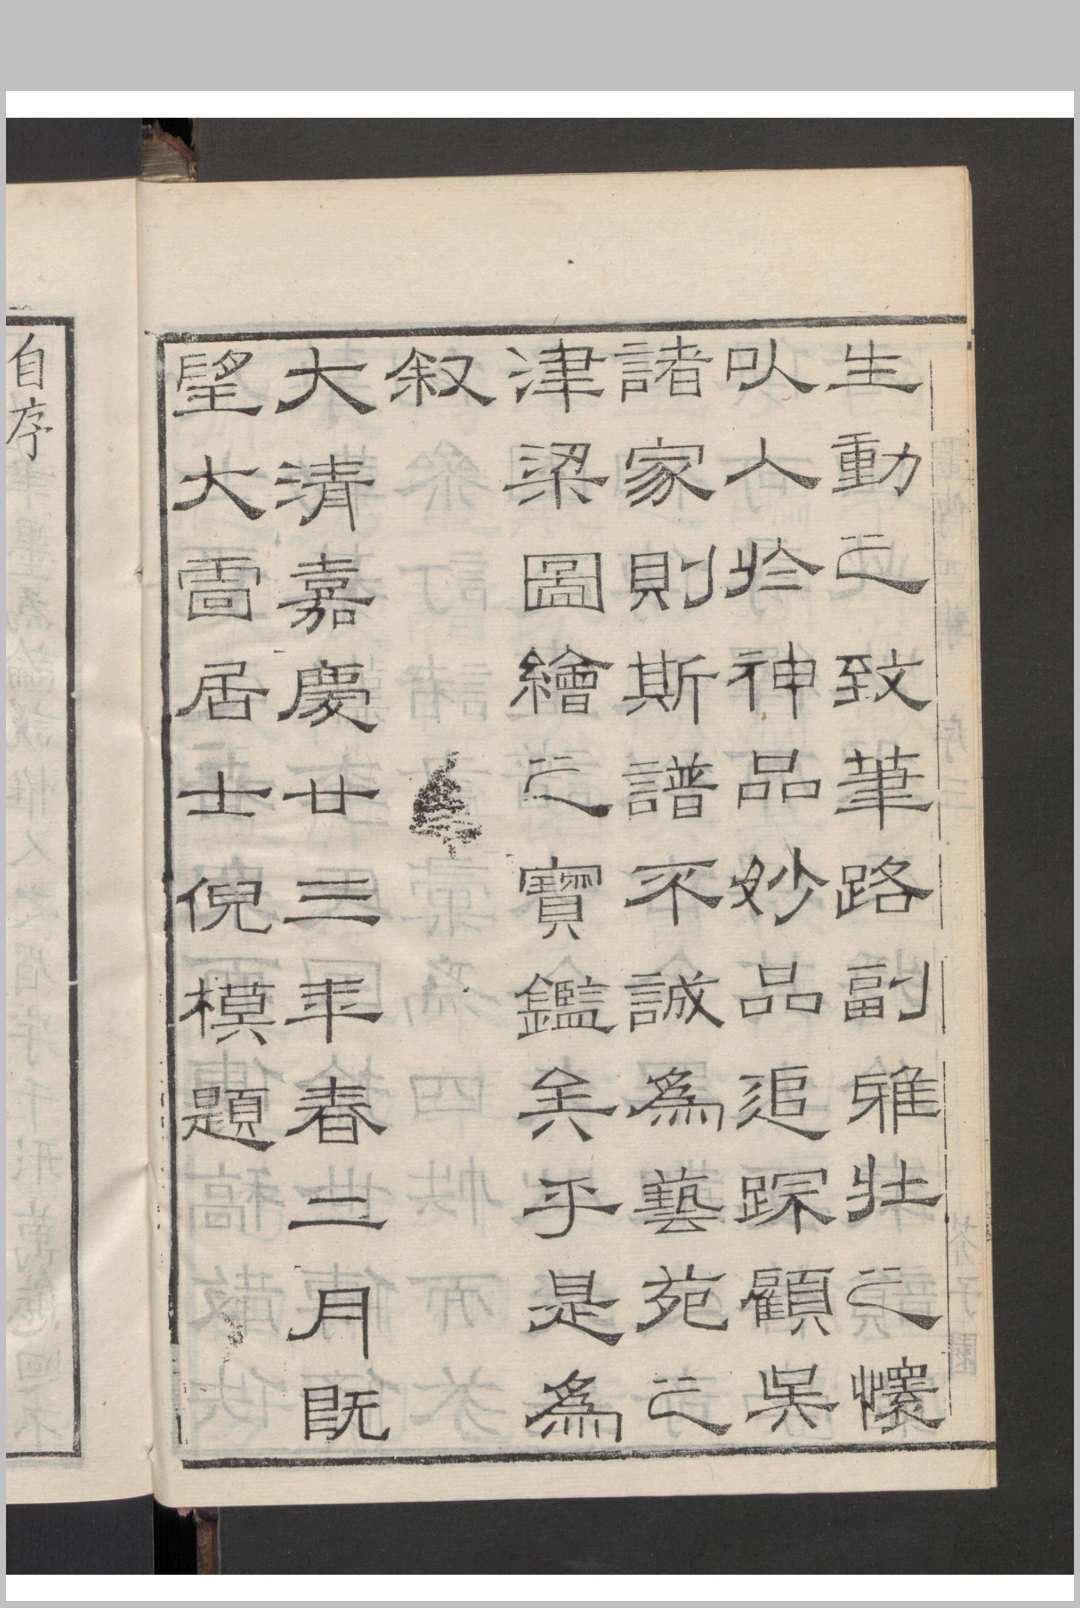 生動之致筆路副雅壯之懷
㕥入於神品妙品追踪顧吳
諸家則斯譜不誠為藝苑之
津梁圖繪之寶鑑矣乎是為
叙
大清嘉慶廿三年春二月既
望大雷居士倪模題
自序